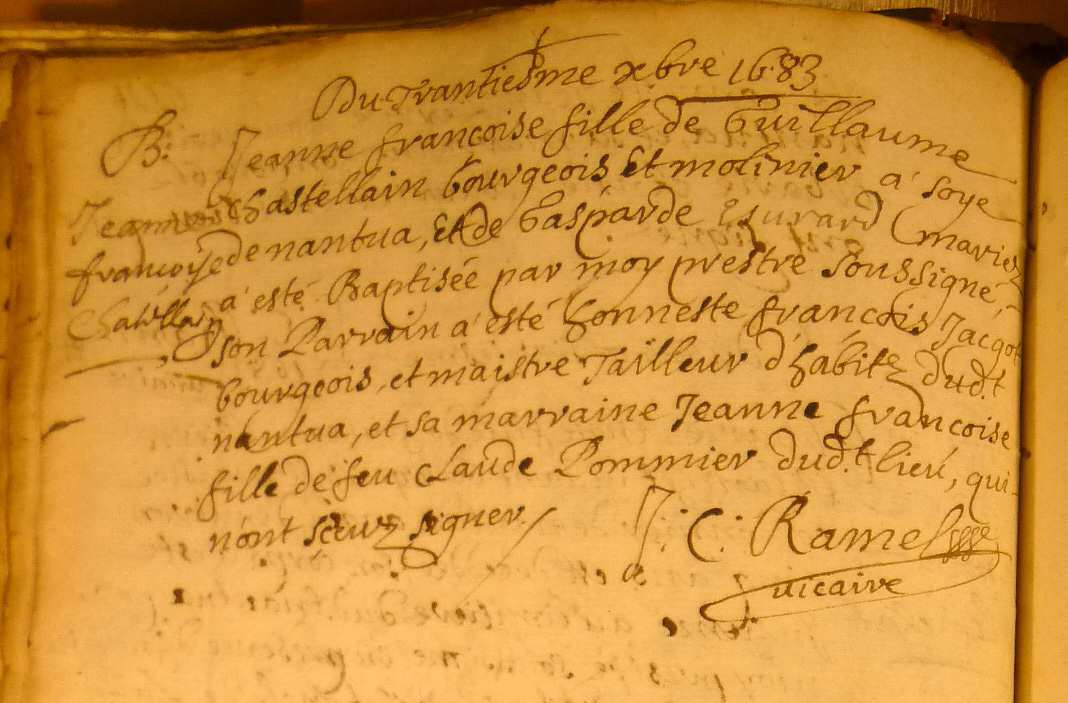 Du Trantiesme xbre 1683
B. Jeanne françoise fille de Guillaume
Jeanne Chastellain bourgeois Et molinier a' soye
françoise de nantua, Et de Gaspárde Esurard (mariez
Chatellain a' esté Baptisée par moy prestre soussigné,
son Parrain a' esté honneste françois Jacquot
bourgeois, et maistre Tailleur d'hábitz dud.t
nantua, et sa marraine Jeanne françoise
fille de feu Claude Pommier dud.t lieú, qui
n'ont sceuz signer.
J: C: Ramel
vicaire